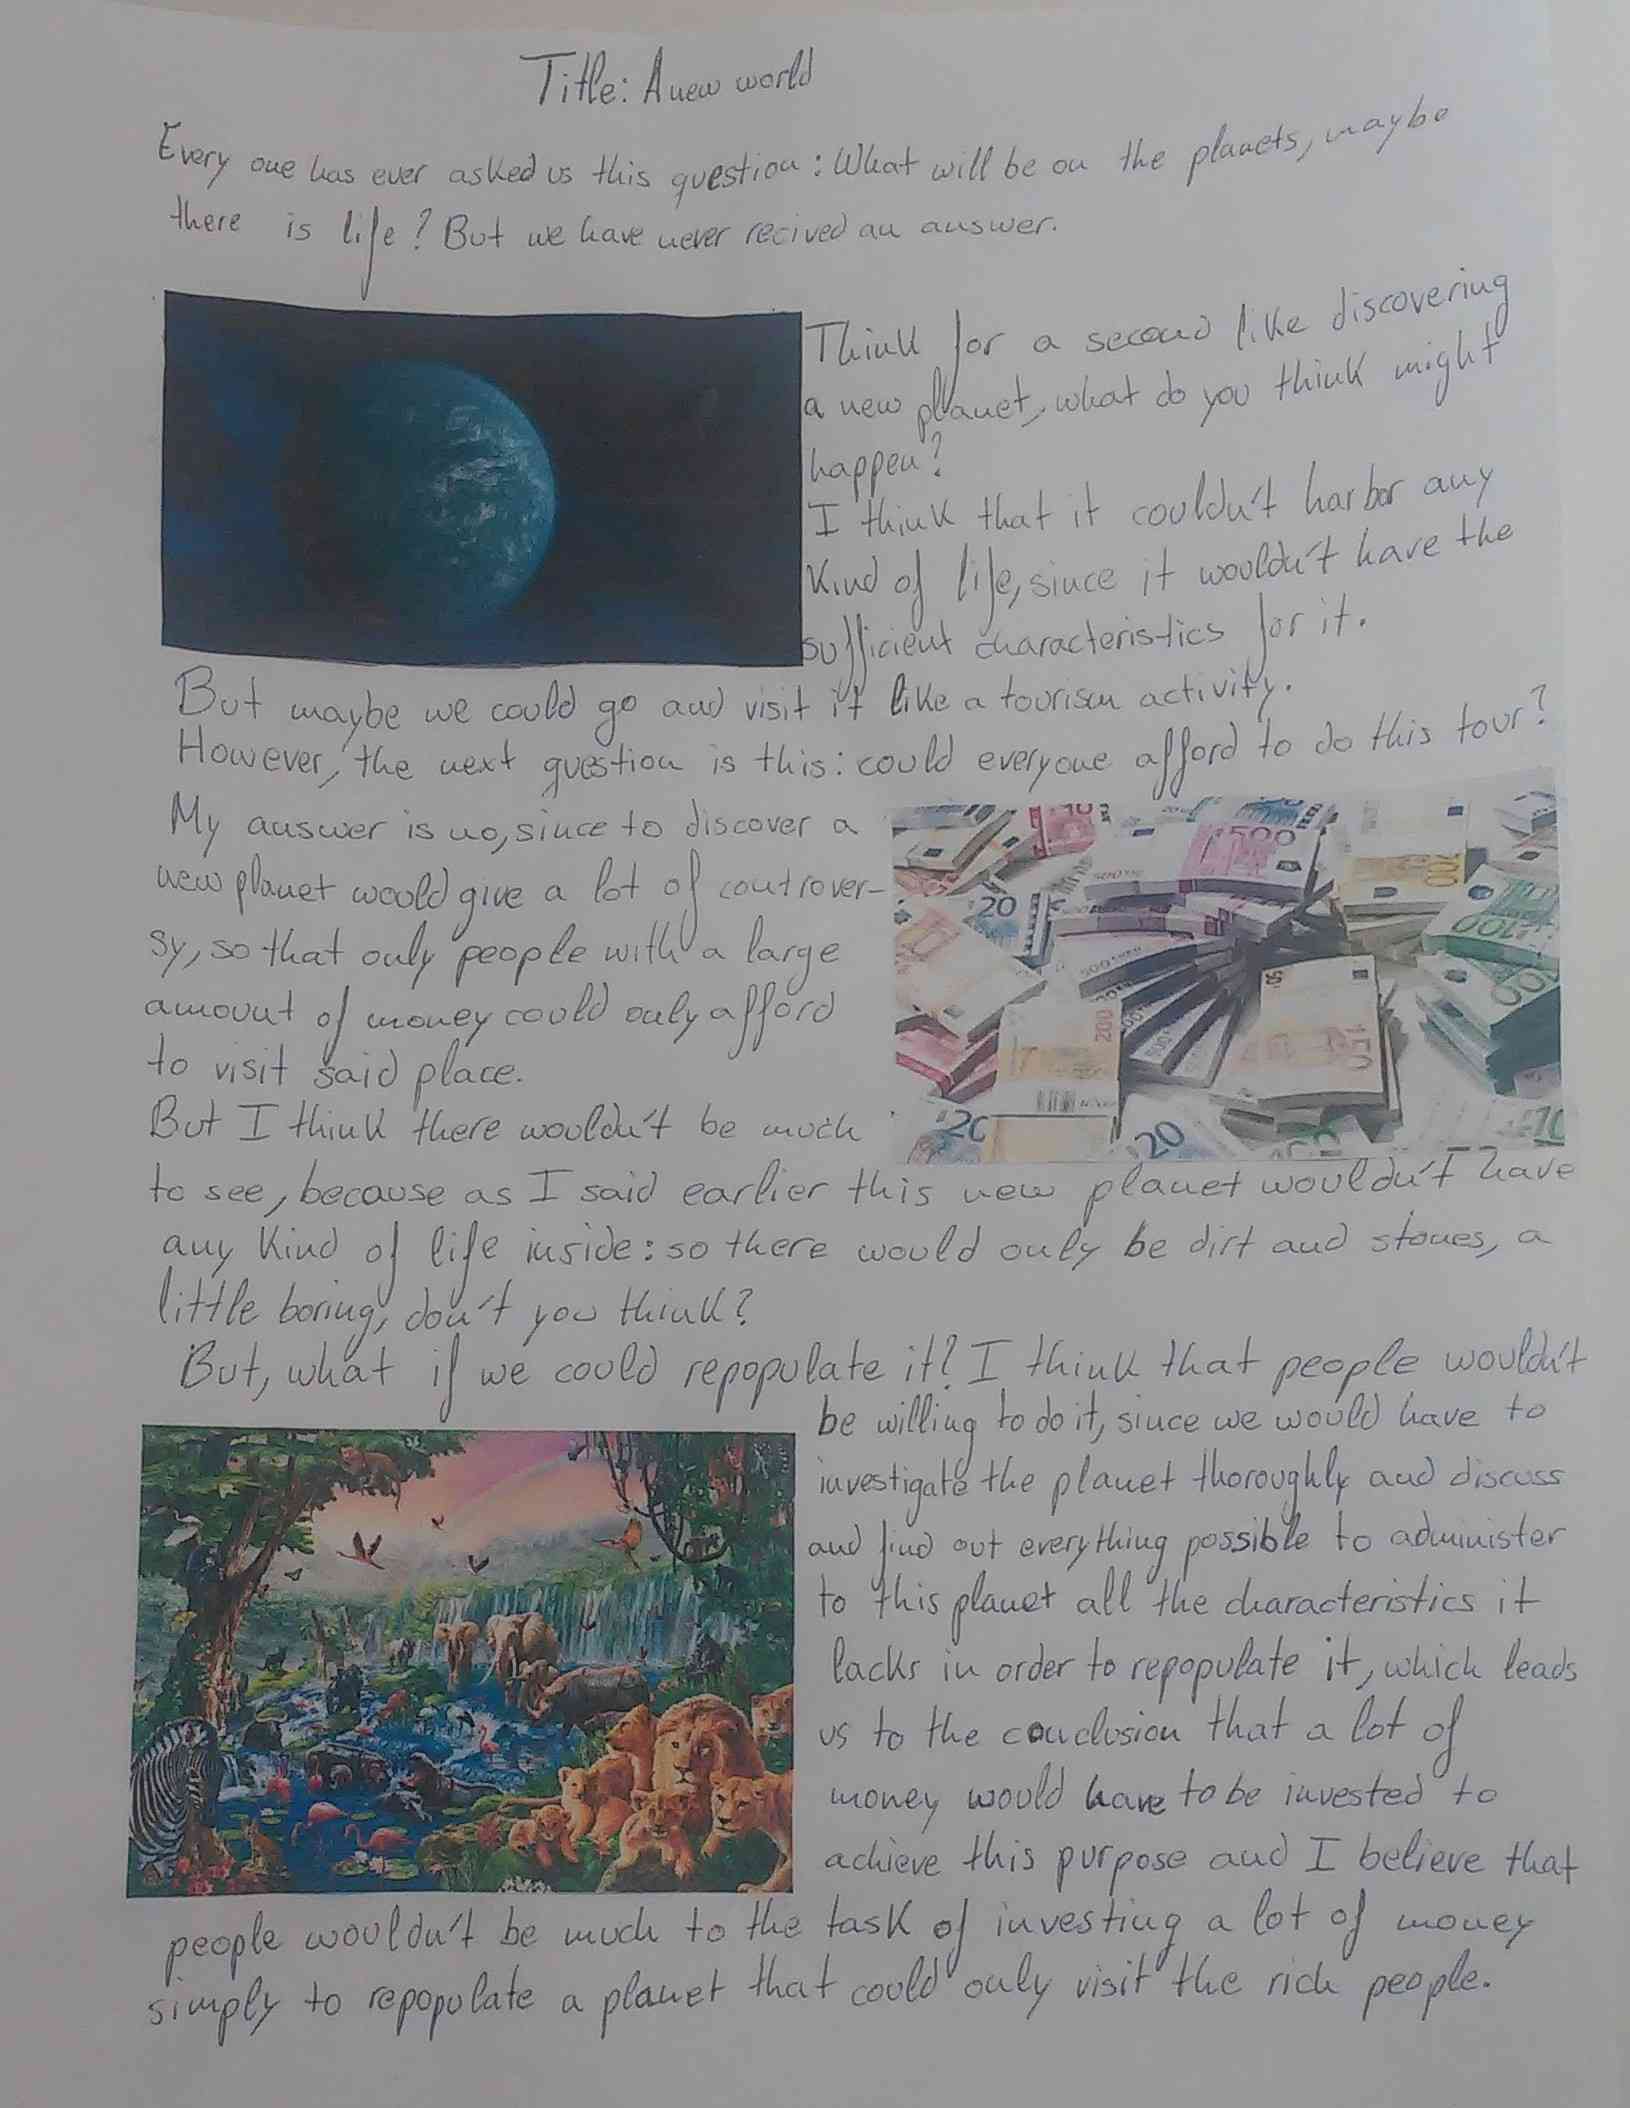 Title: A new world
Every one has ever asked us this question: What will be on the planets, maybe
there is life? But we have never recived an answer.
Think for a second like discovering
a new planet, what do you think might
happen?
I think that it couldn't harbor any
kind of life, since it wouldn't have the
sufficient characteristics for it.
But maybe we could go and visit it like a tourism activity.
However, the next question is this: could everyone afford to do this tour?
My answer is no, since to discover a
new planet would give a lot of controver-
sy, so that only people with a large
amount of money could only afford
to visit said place.
But I think there wouldn't be much
to see, because as I said earlier this new planet wouldn't have
any kind of life inside: so there would only be dirt and stones, a
little boring, don't you think?
But, what if we could repopulate it? I think that people wouldn't
be willing to do it, since we would have to
investigate the planet thoroughly and discuss
and find out everything possible to administer
to this planet all the characteristics it
lacks in order to repopulate it, which leads
us to the conclusion that a lot of
money would have to be invested to
achieve this purpose and I believe that
people wouldn't be much to the task of investing a lot of money
simply to repopulate a planet that could only visit the rich people.
10
500
20
200
500
50
100
200
50
20
20
10